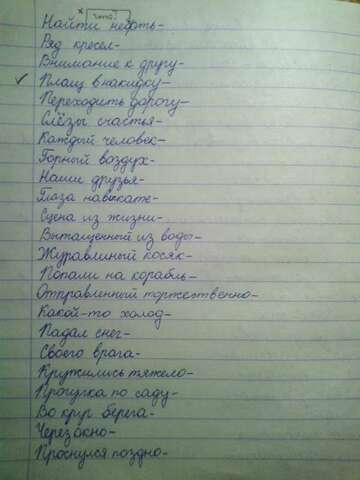 Найти нефть-
Ряд кресел-
Внимание к другу-
Плащ внакидку-
Переходить дорогу-
Слёзы счастья-
Каждый человек-
Горный воздух-
Наши друзья-
Глаза навыкате-
Сцена из жизни-
Вытащенный из воды-
Журавлиный косяк-
Попали на корабль-
Отправленный торжественно-
Какой-то холод-
Падал снег-
Своего врага-
Кружились тяжело-
Прогулка по саду-
Во круг берега-
Через окно-
Проснулся поздно-